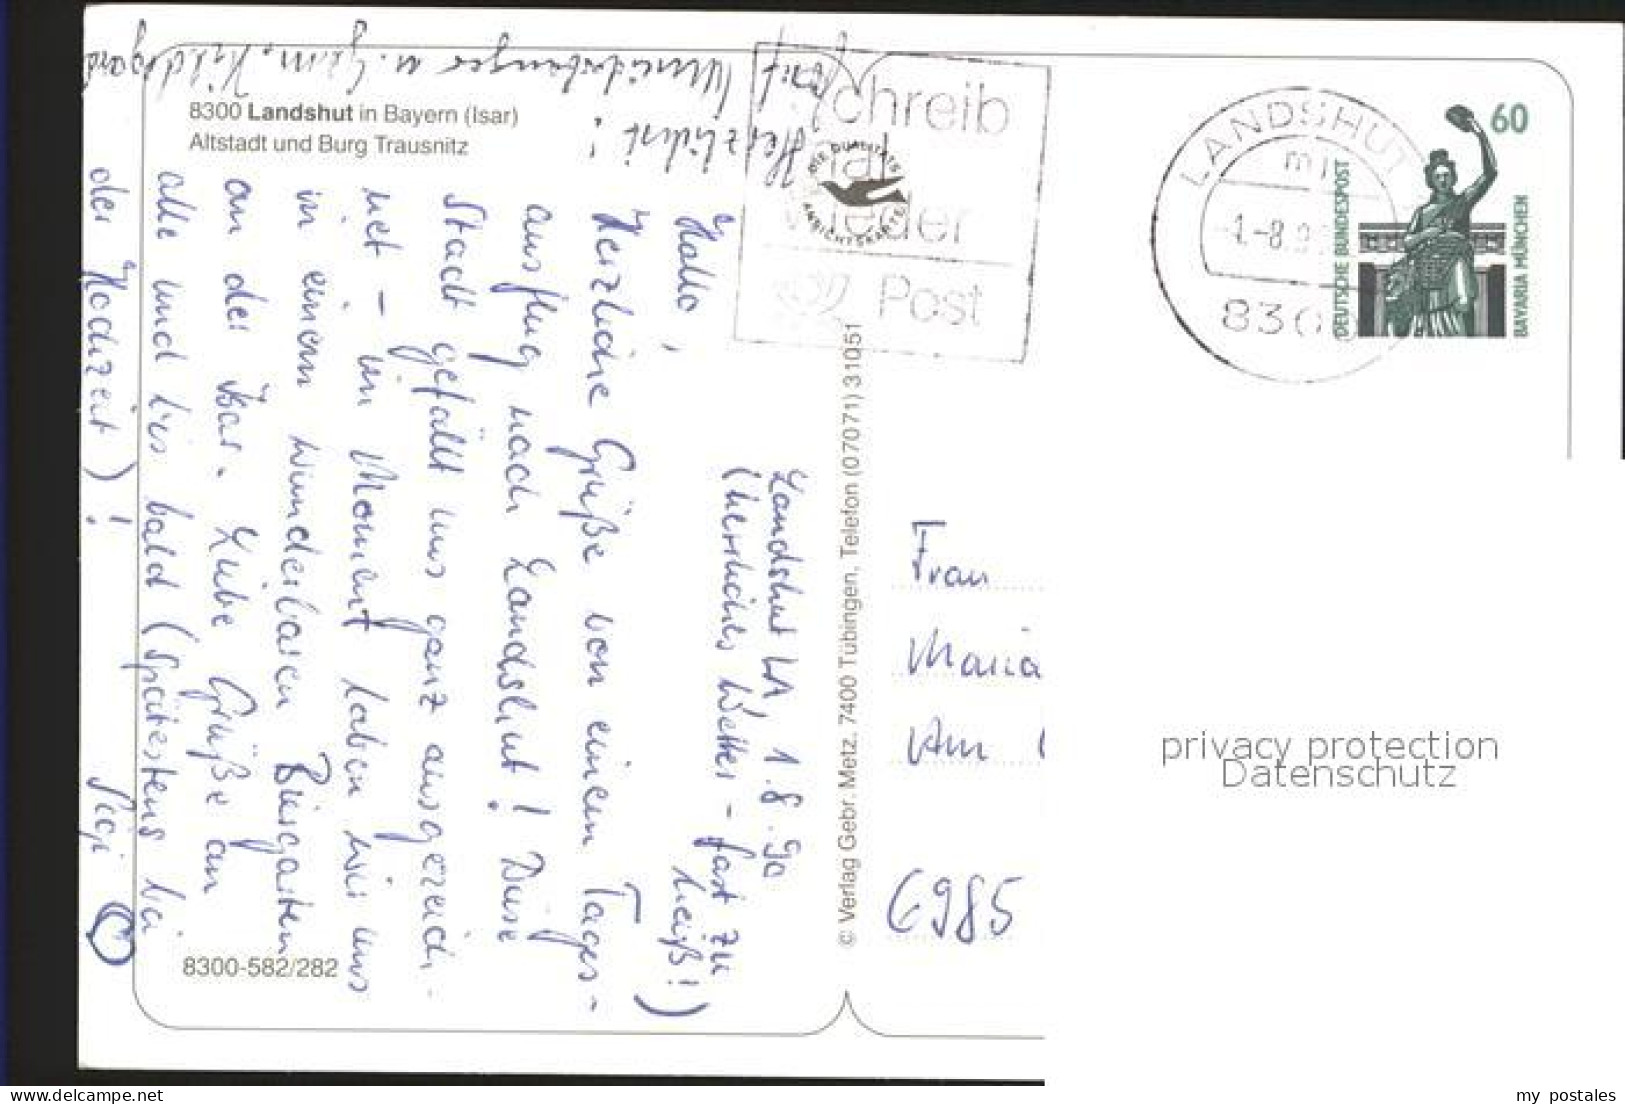 8300 Landshut in Bayern (Isar)
Altstadt und Burg Trausnitz
Landshut LA, 1.8.90
(herrliches Wetter - fast zu
heiß!)
Hallo,
Herzliche Grüße von einem Tages-
ausflug nach Landshut! Diese
Stadt gefällt uns ganz ausgezeich-
net - im Moment laben wir uns
in einem wunderbaren Biergarten
an der Isar. Liebe Grüße an
alle und bis bald (spätestens bei
der Hochzeit)!
Sigi
Herzlichst!
u. Hildegard
8300-582/282
© Verlag Gebr. Metz, 7400 Tübingen, Telefon (07071) 31051
DIE QUALITÄTS
ANSICHTSKARTE
Schreib
mal
wieder
Post
LANDSHUT
mj
-1.-8.9
830
60
DEUTSCHE BUNDESPOST
BAVARIA MÜNCHEN
Frau
Maria
Am
6985
privacy protection
Datenschutz
oldthing.com
my postales